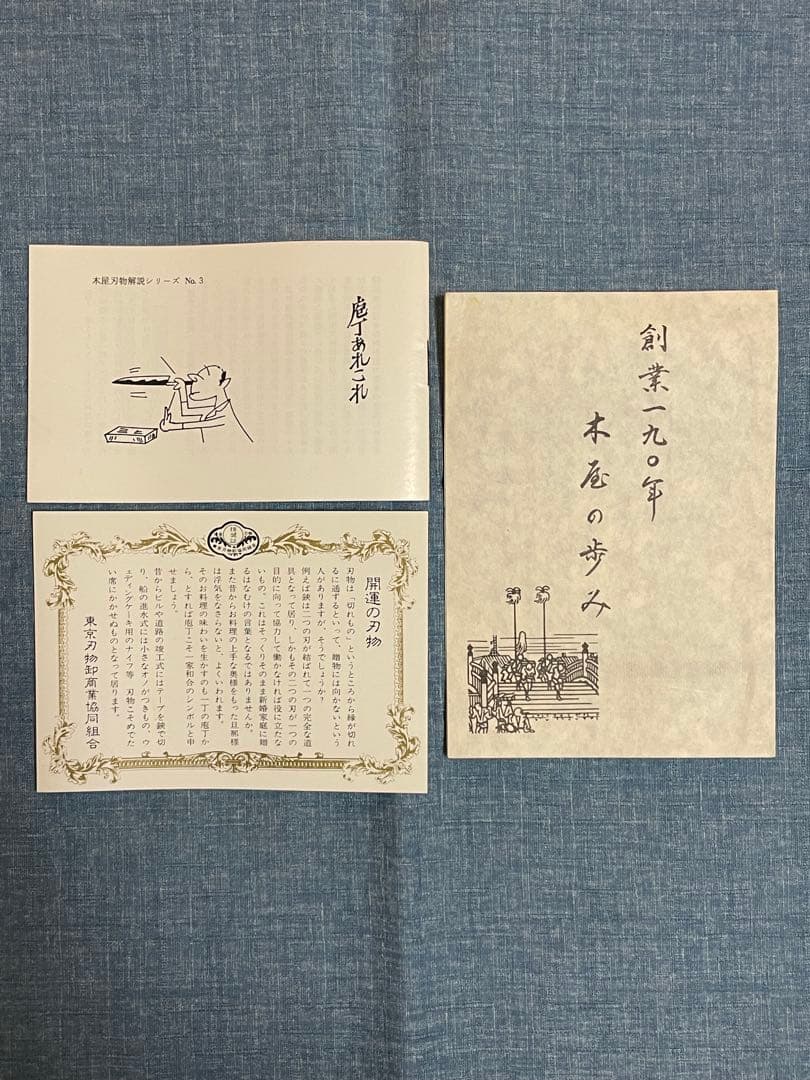 木屋刃物解説シリーズ No.3
庖丁あれこれ
開運の刃物
刃物は「切れもの」というところから縁が切れ
るに通ずるといって、贈物には向かないという
人がありますが、そうでしょうか?
例えば鋏は二つの刃が結ばれて一つの完全な道
具となって居り、しかもその二つの刃が一つの
目的に向って協力して働かなければ役に立たな
いもの。これはそっくりそのまま新婚家庭に贈
るはなむけの言葉となるではありませんか。
また昔からお料理の上手な奥様をもった旦那様
は浮気をなさらないと、よくいわれます。
そのお料理の味わいを生かすのも一丁の庖丁か
ら、とすれば庖丁こそ一家和合のシンボルと申
せましょう。
昔からビルや道路の竣工式にはテープを鋏で切
り、船の進水式には小さなオノがつきもの、ウ
エディングケーキ用のナイフ等 刃物こそめでた
い席にかかせぬものとなって居ります。
東京刃物卸商業協同組合
創業一九〇年
木屋の歩み